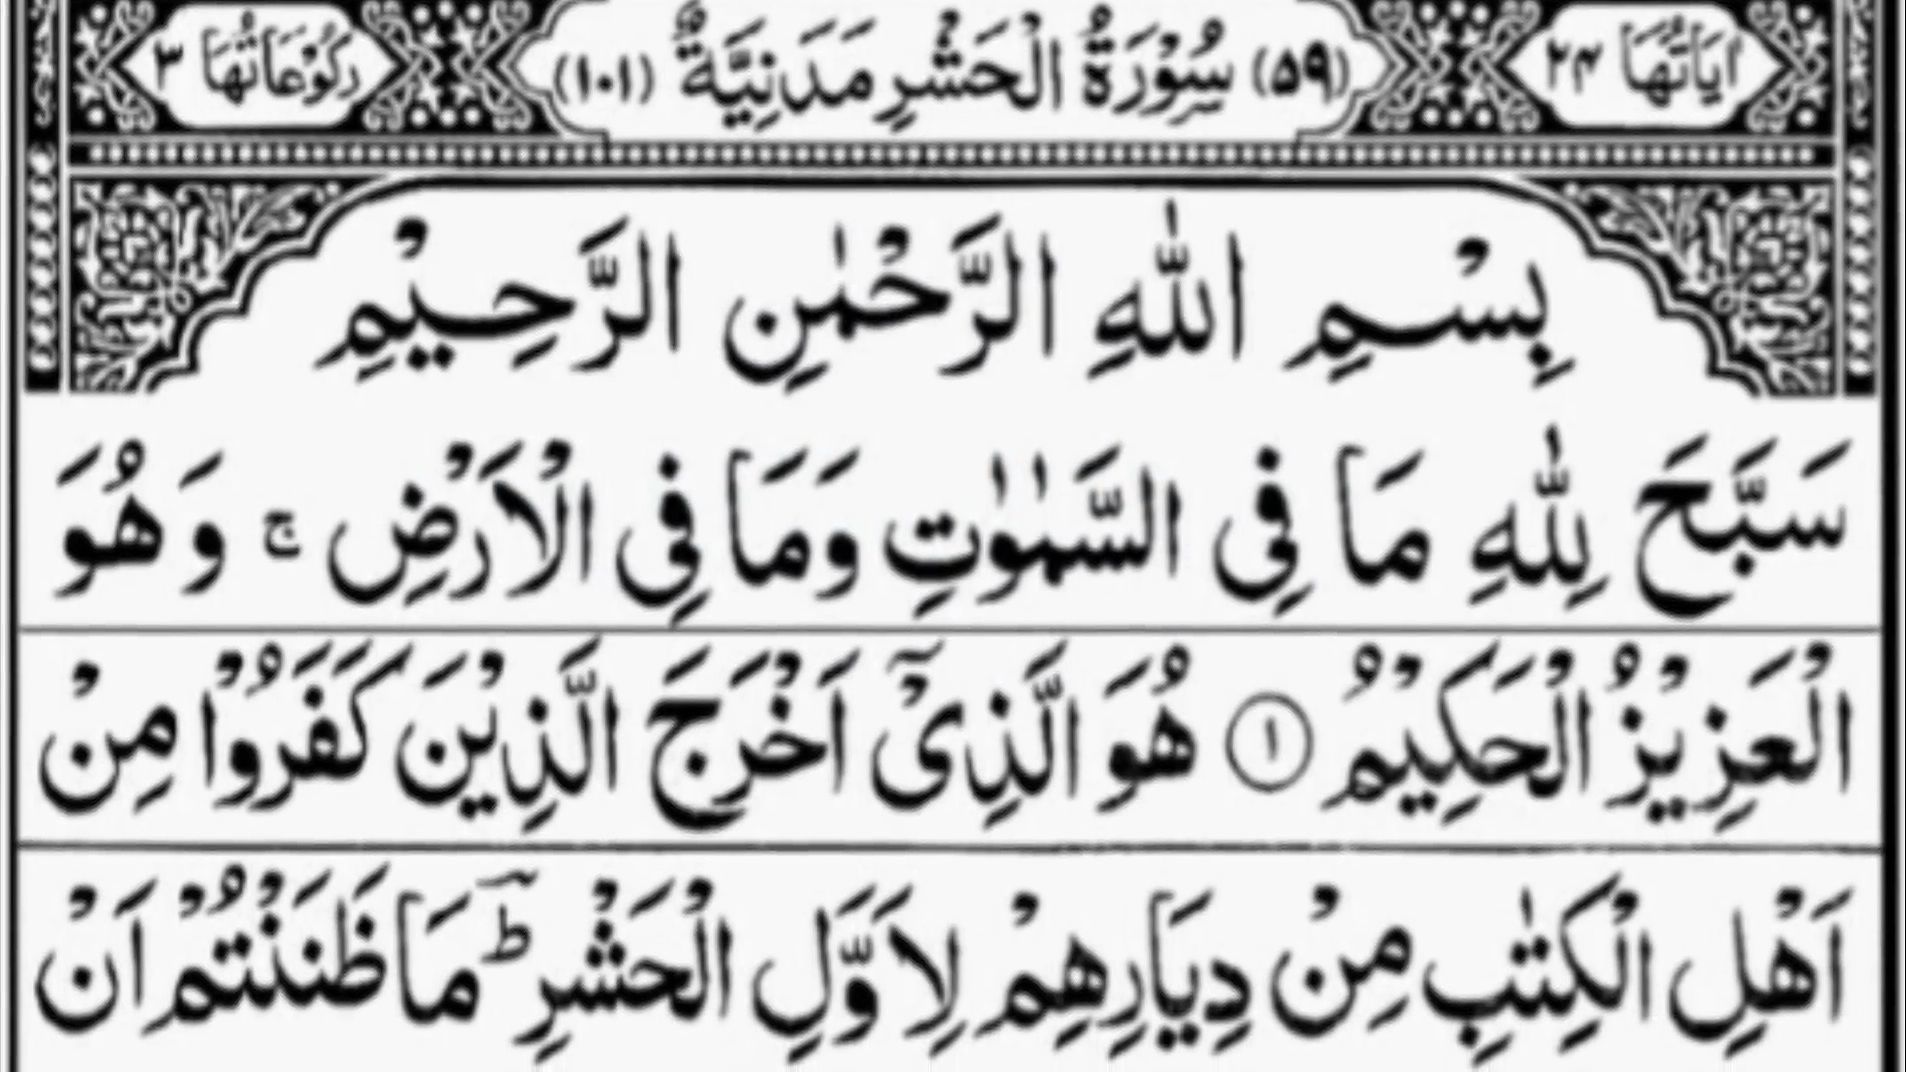 اٰيَاتُهَا ٢٤ (٥٩) سُوْرَةُ الْحَشْرِ مَدَنِيَّةٌ (١٠١) رُكُوْعَاتُهَا ٣
بِسْمِ اللّٰهِ الرَّحْمٰنِ الرَّحِيْمِ
سَبَّحَ لِلّٰهِ مَا فِى السَّمٰوٰتِ وَمَا فِى الْاَرْضِ ۚ وَهُوَ
الْعَزِيْزُ الْحَكِيْمُ ① هُوَ الَّذِىْۤ اَخْرَجَ الَّذِيْنَ كَفَرُوْا مِنْ
اَهْلِ الْكِتٰبِ مِنْ دِيَارِهِمْ لِاَوَّلِ الْحَشْرِ ؕ مَا ظَنَنْتُمْ اَنْ